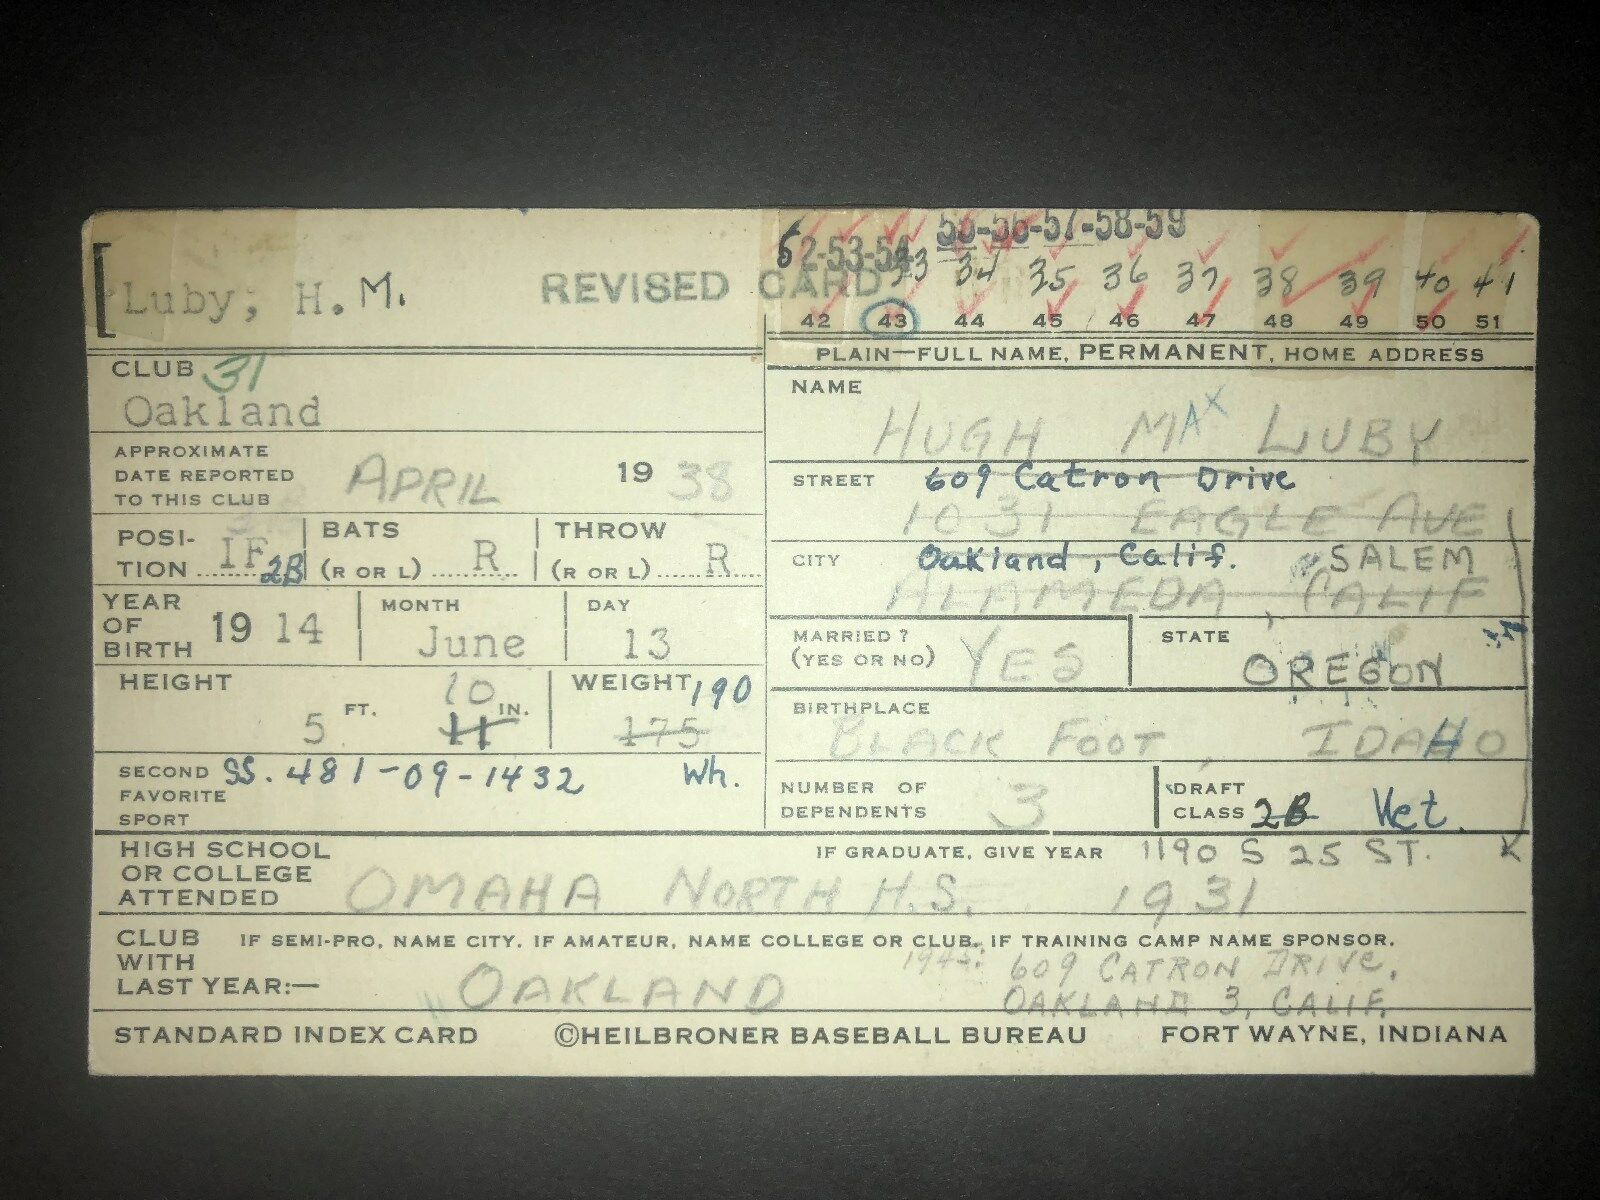 52-53-54 55-56-57-58-59
Luby, H. M. REVISED CARD
33 34 35 36 37 38 39 40 41
42 43 44 45 46 47 48 49 50 51
PLAIN—FULL NAME, PERMANENT, HOME ADDRESS
CLUB 31
Oakland
NAME
HUGH MAX LUBY
APPROXIMATE
DATE REPORTED
TO THIS CLUB APRIL 19 38
STREET 609 Catron Drive
1031 EAGLE AVE
POSI-
TION IF 2B BATS
(R OR L) R THROW
(R OR L) R
CITY Oakland, Calif. SALEM
ALAMEDA, CALIF
YEAR
OF
BIRTH 19 14 MONTH
June DAY
13
MARRIED?
(YES OR NO) YES STATE
OREGON
HEIGHT
5 FT. 10
11 IN. WEIGHT 190
175
BIRTHPLACE
BLACK FOOT IDAHO
SECOND
FAVORITE
SPORT SS. 481-09-1432 Wh.
NUMBER OF
DEPENDENTS 3 DRAFT
CLASS 2B Vet.
HIGH SCHOOL
OR COLLEGE
ATTENDED OMAHA NORTH H.S.
IF GRADUATE, GIVE YEAR 1190 S 25 ST.
1931
CLUB
WITH
LAST YEAR:— IF SEMI-PRO, NAME CITY. IF AMATEUR, NAME COLLEGE OR CLUB. IF TRAINING CAMP NAME SPONSOR.
OAKLAND
609 CATRON DRIVE,
OAKLAND 3, CALIF.
STANDARD INDEX CARD ©HEILBRONER BASEBALL BUREAU FORT WAYNE, INDIANA